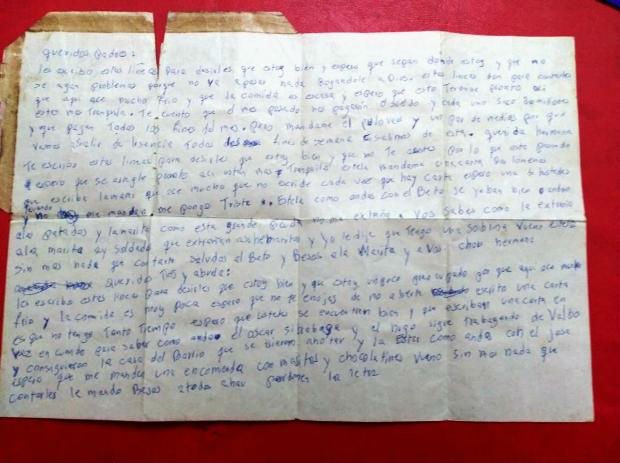 queridos Padres:
les escribo estas lineas para desirles que estoy bien y espero que sepan donde estoy y que no
se agan problemas porque no va a pasar nada Rogandole a Dios estas lineas son para contarles
que aqui ase mucho frio y que la comida es escasa y espero que esto Termine pronto asi
esto mas Tranquilo. Te cuento que el mes pasado no pagaron el sueldo y cada uno
y que pagan Todos los fines del mes. Pero mandame el pulover y un par de medias por que
vamos a salir de lisencia Todos fines de semana de esta. querida hermana
Te escribo esta lineas para desirles que estoy bien y que no Te por lo que esta pasando
espero que se arregle pronto asi estoy mas Tranquilo estela mandame una carta por lo menos
que escriba la mami que ase mucho que no recibo cada vez que hay carta espero una si
y no me mandan me pongo Triste. Estela como andas con el Beto se yeban bien o andan
a las patadas y la marita como esta grande quisas no me extraña. Vos sabes como la extraño
a la marita ay Soldados que extrañan a sus hermanitas y yo le dije que Tengo una sobrina
sin mas nada que contarte saludos al Beto y Besos a la Marita y a vos chau hermana
queridos Tios y abuela:
les escribo estas lineas para desirles que estoy bien y que estoy ya que aqui ase mucho
frio y la comida es muy poca espero que no se enojes de no aberte escrito una carta
es que no tengo Tanto Tiempo espero que ustedes se encuentren bien y que escriban una carta en
vez en cuando quie saber como anda el oscar si trabaja y el sigue Trabajando de
y consiguieron la casa del Barrio que se bieron anotar y la Ester como anda con el jose
espero que me manden una encomienda con masitas y chocolatines vueno sin mas nada que
contarles le mando Besos a todos chau perdonen la letra